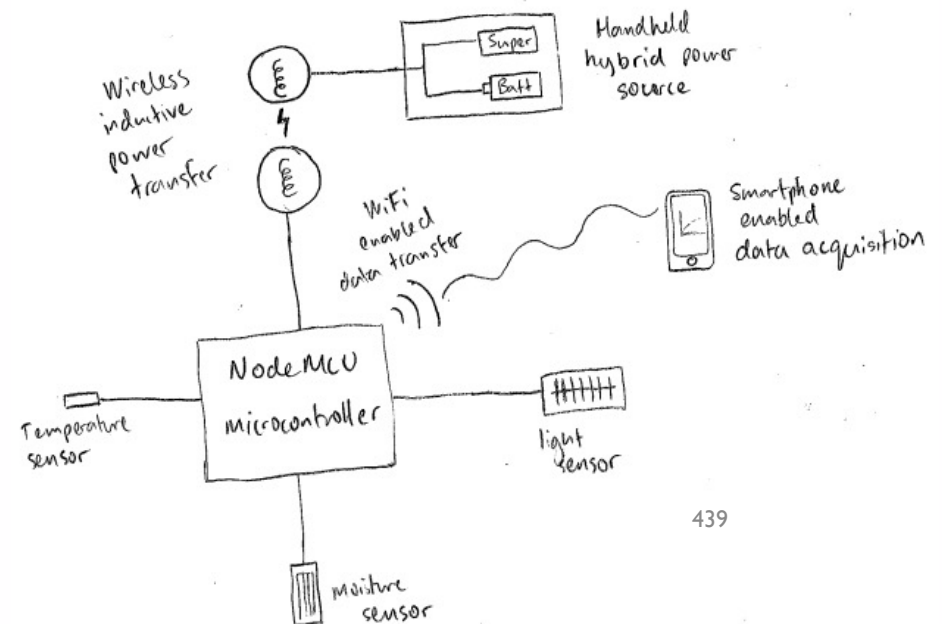 Handheld
hybrid power
source
Super
Batt
Wireless
inductive
power
transfer
WiFi
enabled
data transfer
Smartphone
enabled
data acquisition
NodeMCU
microcontroller
Temperature
sensor
light
sensor
439
Moisture
sensor